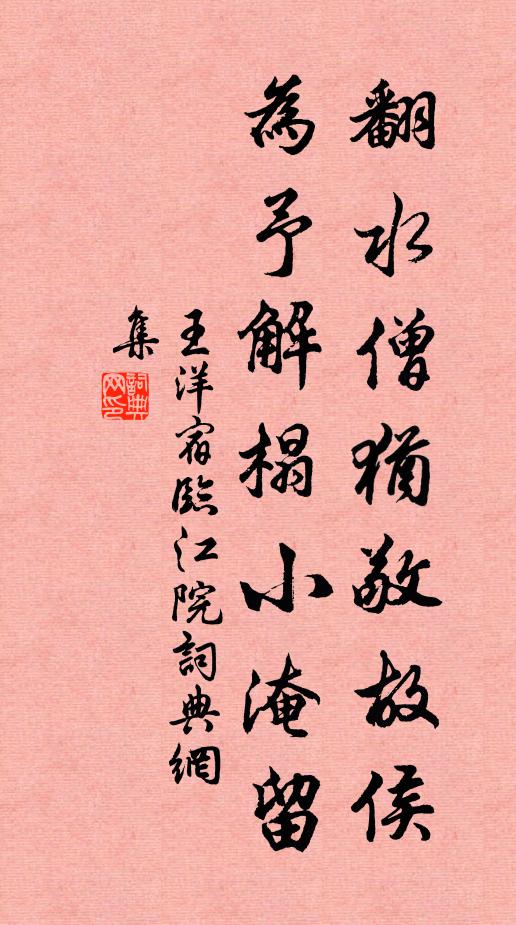 翻水僧猶敬故侯
為予解榻小淹留
王洋宿臨江院詞典網
集
詞典
网印